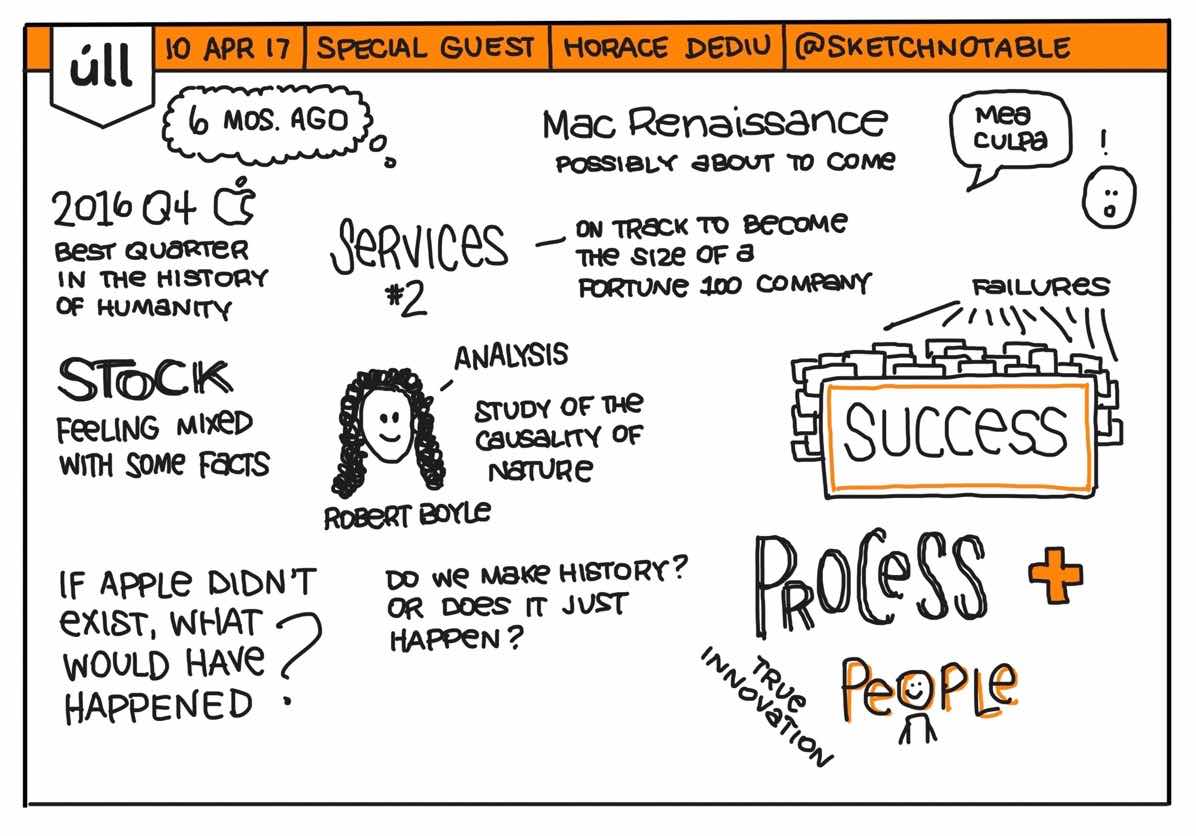 úll
10 APR 17
SPECIAL GUEST
HORACE DEDIU
@SKETCHNOTABLE
6 MOS. AGO
Mac Renaissance
POSSIBLY ABOUT TO COME
Mea
CULPA
!
2016 Q4
BEST QUARTER
IN THE HISTORY
OF HUMANITY
SERVICES
#2
ON TRACK TO BECOME
THE SIZE OF A
FORTUNE 100 COMPANY
FAILURES
SUCCESS
STOCK
FEELING MIXED
WITH SOME FACTS
ANALYSIS
STUDY OF THE
CAUSALITY OF
NATURE
ROBERT BOYLE
IF APPLE DIDN'T
EXIST, WHAT
WOULD HAVE
HAPPENED?
DO WE MAKE HISTORY?
OR DOES IT JUST
HAPPEN?
PROCESS +
PEOPLE
TRUE
INNOVATION